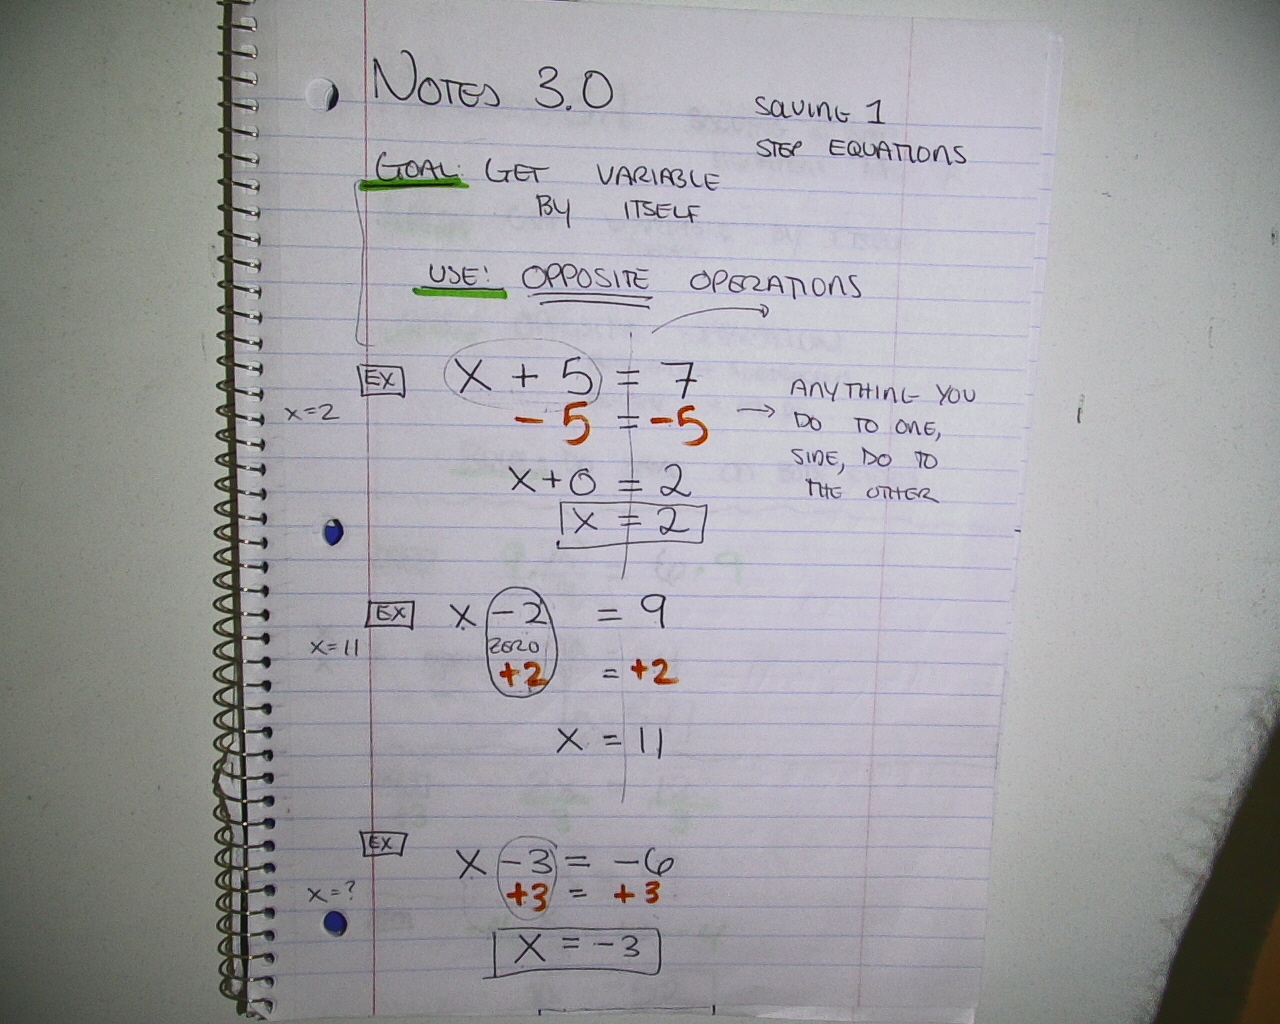 NOTES 3.0
SOLVING 1
STEP EQUATIONS
GOAL: GET VARIABLE
BY ITSELF
USE: OPPOSITE OPERATIONS
EX
x + 5 = 7
- 5 = -5
x=2
→ ANYTHING YOU
DO TO ONE,
SIDE, DO TO
THE OTHER
x+0 = 2
x = 2
EX
x -2 = 9
ZERO
x=11
+2 = +2
x = 11
EX
x -3 = -6
x=?
+3 = +3
x = -3